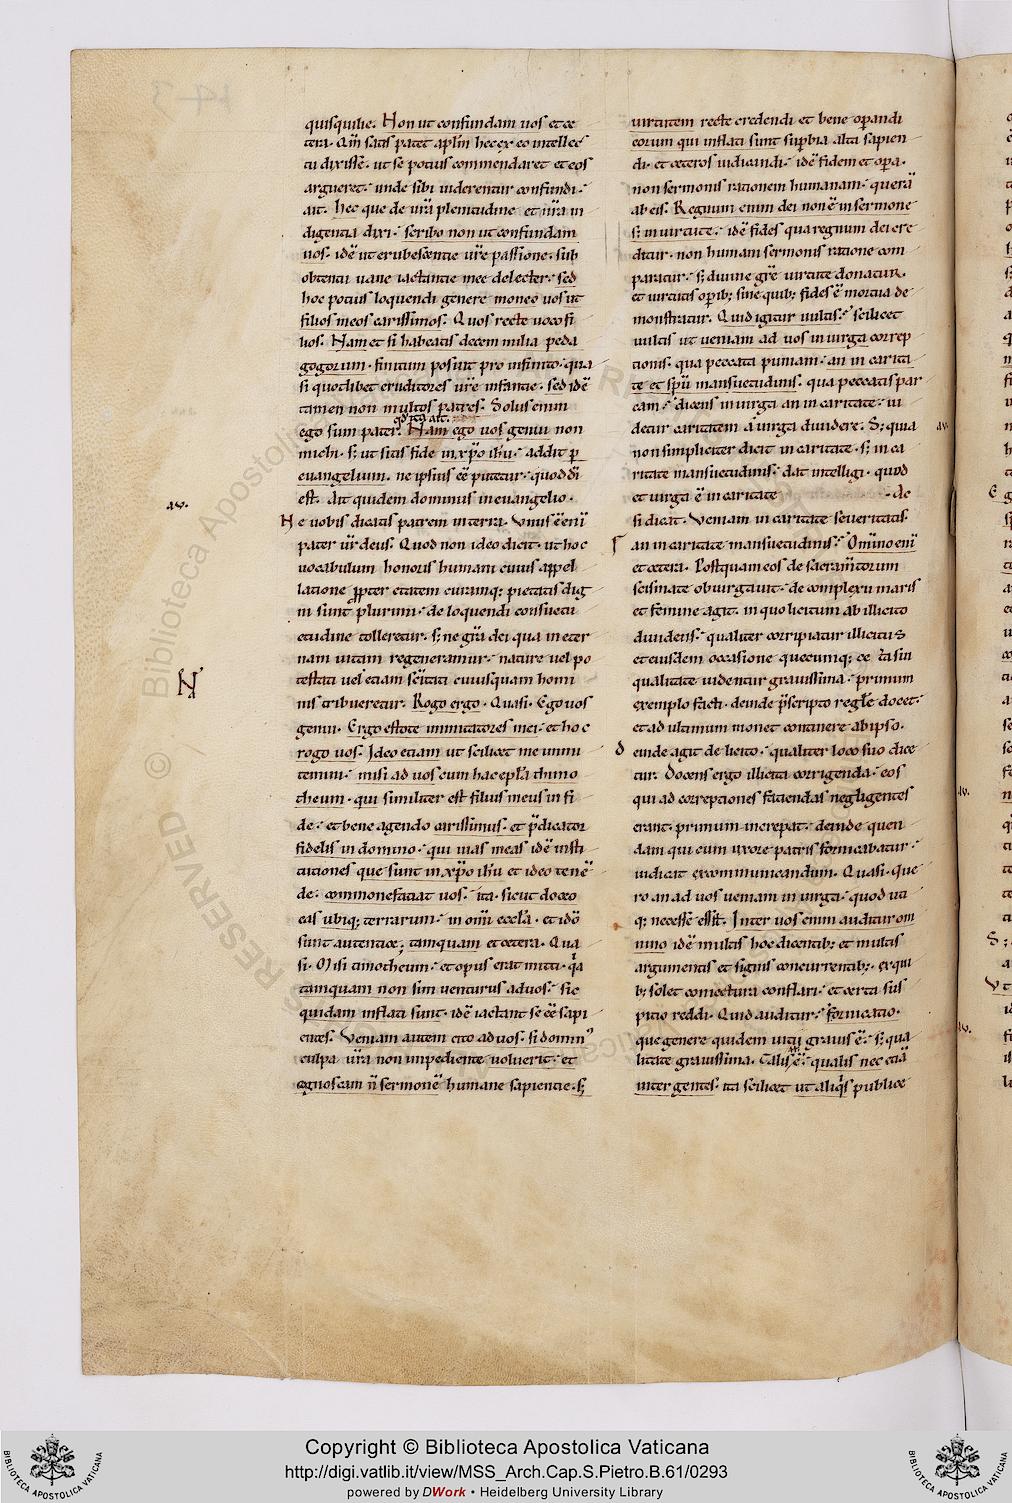 quisquilie. Non ut confundam uos et ce
tera. Qm̄ satis patet apl̄m hec ex eo intellec
tu dixisse. ut se potius commendaret et eos
argueret. unde sibi uiderentur confundi.
ait. hec que de ur̄a plenitudine et nr̄a in
digentia dixi. scribo non ut confundam
uos. idē ut erubescentie ur̄e passione. sub
obtentu uane iactantie mee delecter. sed
hoc potius loquendi genere moneo uos ut
filios meos carissimos. Quos recte uoco fi
lios. Nam et si habeatis decem milia peda
gogorum. finitum posuit pro infinito. qua
si quotlibet eruditores ur̄e infantie. sed idē
tamen non multos patres. Solus enim
ego sum pater. Nam ego uos genui non
michi. s; ut sitis fide in xp̄o ih̄u. addit p
euangelium. ne ipsius eē putetur. quod dī
est. Ait quidem dominus in euangelio.
av.
Ne uobis dicatis patrem in terra. Vnus ē enī
pater ur̄ deus. Quod non ideo dicit. ut hoc
uocabulum honoris humani cuius appel
latione ꝓpter etatem curamq; pietatis dig
ni sunt plurimi. de loquendi consuetu
etudine tolleretur. s; ne grā dei qua in eter
nam uitam regeneramur. nature uel po
testati uel etiam sc̄itati cuiusquam homi
N
nis tribueretur. Rogo ergo. Quasi. Ego uos
genui. Ergo estote immitatores mei. et hoc
rogo uos. Ideo etiam ut scilicet me immi
temini. misi ad uos cum hac epl̄a thimo
theum. qui similiter est filius meus in fi
de. et bene agendo carissimus. et p̄dicator
fidelis in domino. qui uias meas idē insti
tutiones que sunt in xp̄o ih̄u et ideo tenē
de. commonefaciat uos. ita. sicut doceo
eas ubiq; terrarum. in om̄i eccl̄a. et idō
sunt autentice. tamquam et cetera. Qua
si. Misi timotheum. et opus erat mitti. q̄a
tamquam non sim uenturus ad uos. sic
quidam inflati sunt. idē iactant se eē sapi
entes. Veniam autem cito ad uos. si domin
culpa ur̄a non impediente uoluerit. et
cognoscam n̄ sermonē humane sapientie. s;
uirtutem recte credendi et bene oꝑandi
eorum qui inflati sunt suꝑbia alta sapien
di. et ceteros iudicandi. idē fidem et oꝑa.
non sermonis rationem humanam. querā
ab eis. Regnum enim dei non ē in sermone
s; in uirtute. idē fides qua regnum dei cre
ditur. non humani sermonis ratione com
paratur. s; diuine gr̄e uirtute donatur.
et uirtutis oꝑib; sine quib; fides ē mortua de
monstratur. Quid igitur uultis. scilicet
uultis ut ueniam ad uos in uirga correp
tionis. qua peccata puniam. an in carita
te et sp̄u mansuetudinis. qua peccatis par
cam. dicens in uirga an in caritate. ui
detur caritatem a uirga diuidere. S; quia
av.
non simpliciter dicit in caritate. s; in ca
ritate mansuetudinis. dat intelligi. quod
et uirga ē in caritate - de
si dicat. Veniam in caritate seueritatis.
an in caritate mansuetudinis. Omnino enī
et cetera. Postquam eos de sacram̄torum
scismate obiurgauit. de complexu maris
et femine agit. in quo licitum ab illicito
diuidens. qualiter corripiatur illicitus
et eiusdem occasione quecumq;
qualitate uidentur grauissima. primum
exemplo facti. deinde p̄scripto regl̄e docet.
et ad ultimum monet continere ab ipso.
deinde agit de licito. qualiter loco suo dice
tur. Docens ergo illicita corrigenda. eos
qui ad correptiones faciendas negligentes
erant. primum increpat. deinde quen
dam qui cum uxore patris fornicabatur.
iudicat excommunicandum. Quasi. que
ro an ad uos ueniam in uirga. quod uti
q; necesse est. Inter uos enim auditur om
nino idē multis hoc dicentib; et multis
argumentis et signis concurrentib;. ex qui
b; solet coniectura conflari. et certa sus
pitio reddi. Quid auditur. fornicatio.
que genere quidem uitii grauis ē. s; qua
litate grauissima. Talis ē. qualis nec etiā
inter gentes. ita scilicet ut aliq̄s publice
Copyright © Biblioteca Apostolica Vaticana
http://digi.vatlib.it/view/MSS_Arch.Cap.S.Pietro.B.61/0293
powered by DWork • Heidelberg University Library